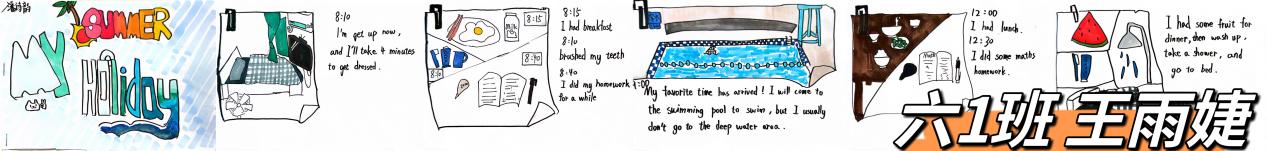 SUMMER
Holiday
8:10
I'm get up now,
and I'll take 4 minutes
to get dressed.
8:15
Milk
8:40
8:30
8:15
I had breakfast
8:10
brushed my teeth
8:40
I did my homework
for a while
My favorite time has arrived! I will come to
the swimming pool to swim, but I usually
don't go to the deep water area.
12:00
I had lunch.
12:30
I did some maths
homework.
I had some fruit for
dinner, then wash up,
take a shower, and
go to bed.
六1班 王雨婕